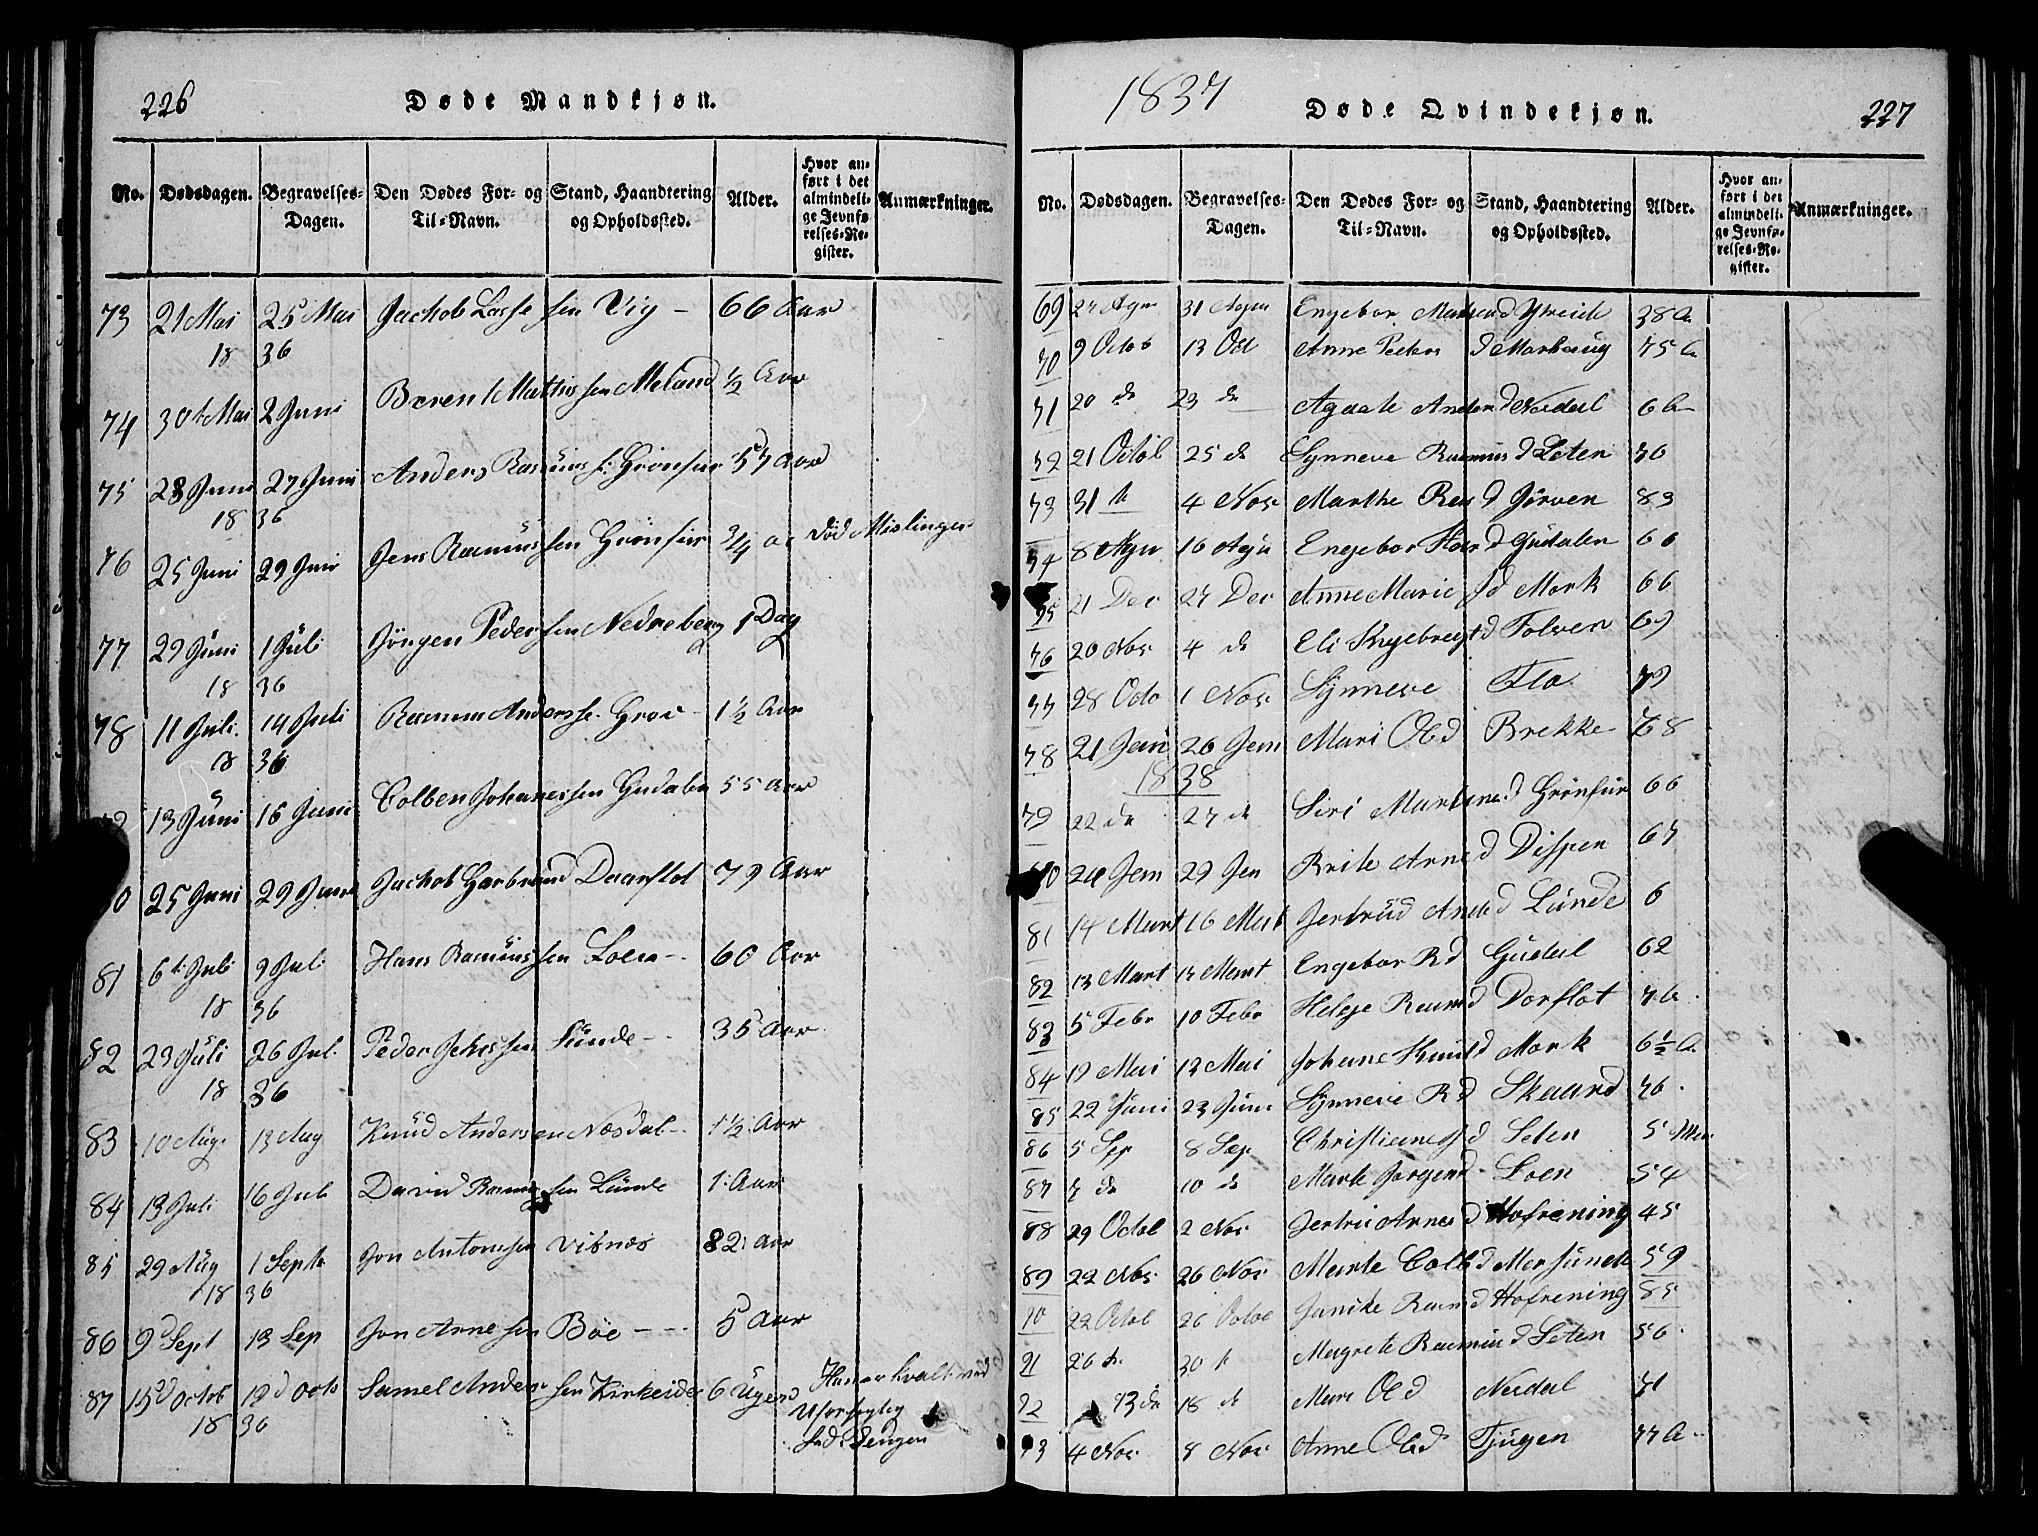 226
Døde Mandkjøn.
No. Dødsdagen. Begravelses-Dagen. Den Dødes For- og Til-Navn. Stand, Haandtering og Opholdssted. Alder. Hvor anført i det almindelige Jevnførelses-Register. Anmærkninger.
73 21 Mai 25 Mai Jachob Lassesen Vig - 66 Aar
18 36
74 30t Mai 2 Juni Berent Mathissen Meland ½ Aar
75 23 Juni 27 Juni Anders Rasmus s: Grønfur 57 Aar
18 36
76 25 Juni 29 Juni Jens Rasmussen Grønfur 3/4 a. død Mislinger
77 29 Juni 1 Juli Jörgen Pedersen Nedreberg 1 Dag
18 36
78 11 Juli 14 Juli Rasmus Anderss. Grov - 1½ Aar
18 36
13 Juni 16 Juni Colben Johanessen Gudalen 55 Aar
25 Juni 29 Juni Jachob Garbrand Daarflot 79 Aar
81 6t Juli 9 Juli Hans Rasmussen Loen -- 60 Aar
18 36
82 23 Juli 26 Jul. Peder Jetssen Lunde -- 35 Aar
18 36
83 10 Aug. 13 Aug Knud Andersen Næsdal -- 1½ Aar
84 13 Juli 16 Juli David Rasmussen Lunde 1. Aar
85 29 Aug 1 Septb Jon Antonesen Visnæs 82. Aar
18 36
86 9d Sept 13 Sep Jon Arnesen Böe --- 5 Aar
87 15d Octob 19d Octo Samel Andersen Kirkeide 6 Uger Han er kvalt ved
18 36 Uforsigtig
Sengen
1837
Døde Qvindekjøn.
227
No. Dødsdagen. Begravelses-Dagen. Den Dødes For- og Til-Navn. Stand, Haandtering og Opholdssted. Alder. Hvor anført i det almindelige Jevnførelses-Register. Anmærkninger.
69 27 Agu 31 Agu Engebor Madsend Ytreide 38 A
70 9 Octob 13 Oct Anne Peders d Markaug 75 A
71 20 d 23 d Agaate Anders d Nesdal 6 A
72 21 Octob 25 d Synneve Rasmus d Seten 70
73 31 d 4 Nov Marthe Ras d Jörven 83
74 8 Agu 16 Agu Engebor d Gudalen 60
75 21 Dec 27 Dec Anne Marie d Mork 66
76 20 Nov 4 d Eli Engebregtd Tolven 69
77 28 Octo 1 Nov Synneve Flo 79
78 21 Jan 26 Jan Mari Ole d Brekke 68
1838
79 22 d 27 d Siri Martines d Grønfur 66
24 Jan 29 Jan Brite Arne d Dispen 67
81 14 Mart 16 Mart Jertrud Anders d Lunde 6
82 13 Mart 17 Mart Engebor R d Gudal 62
83 5 Febr 10 Febr Helege Rasmd Dorflot 7 A.
84 19 Mai 13 Mai Johane Knud d Mork 6½ A
85 22 Juni 23 Juni Synneve R d Skaard 76.
86 5 Sep 8 Sep Christiane d Seten 5
87 7 d 10 d Marte Jorgend Loen 54
88 29 Octob 2 Nov Jertru Arnes d Hofrening 45
89 22 Nov 26 Nov Marte Colb d Mersunde 59
90 22 Octob 26 Octob Janike Rasm d Hofrening 85
91 26 d 30 d Magrete Rasmus d Seten 56.
92 13 d 18 d Mari Ole d Nesdal 71
93 4 Nov 8 Nov Anne Ole d Tjugen 77 A.